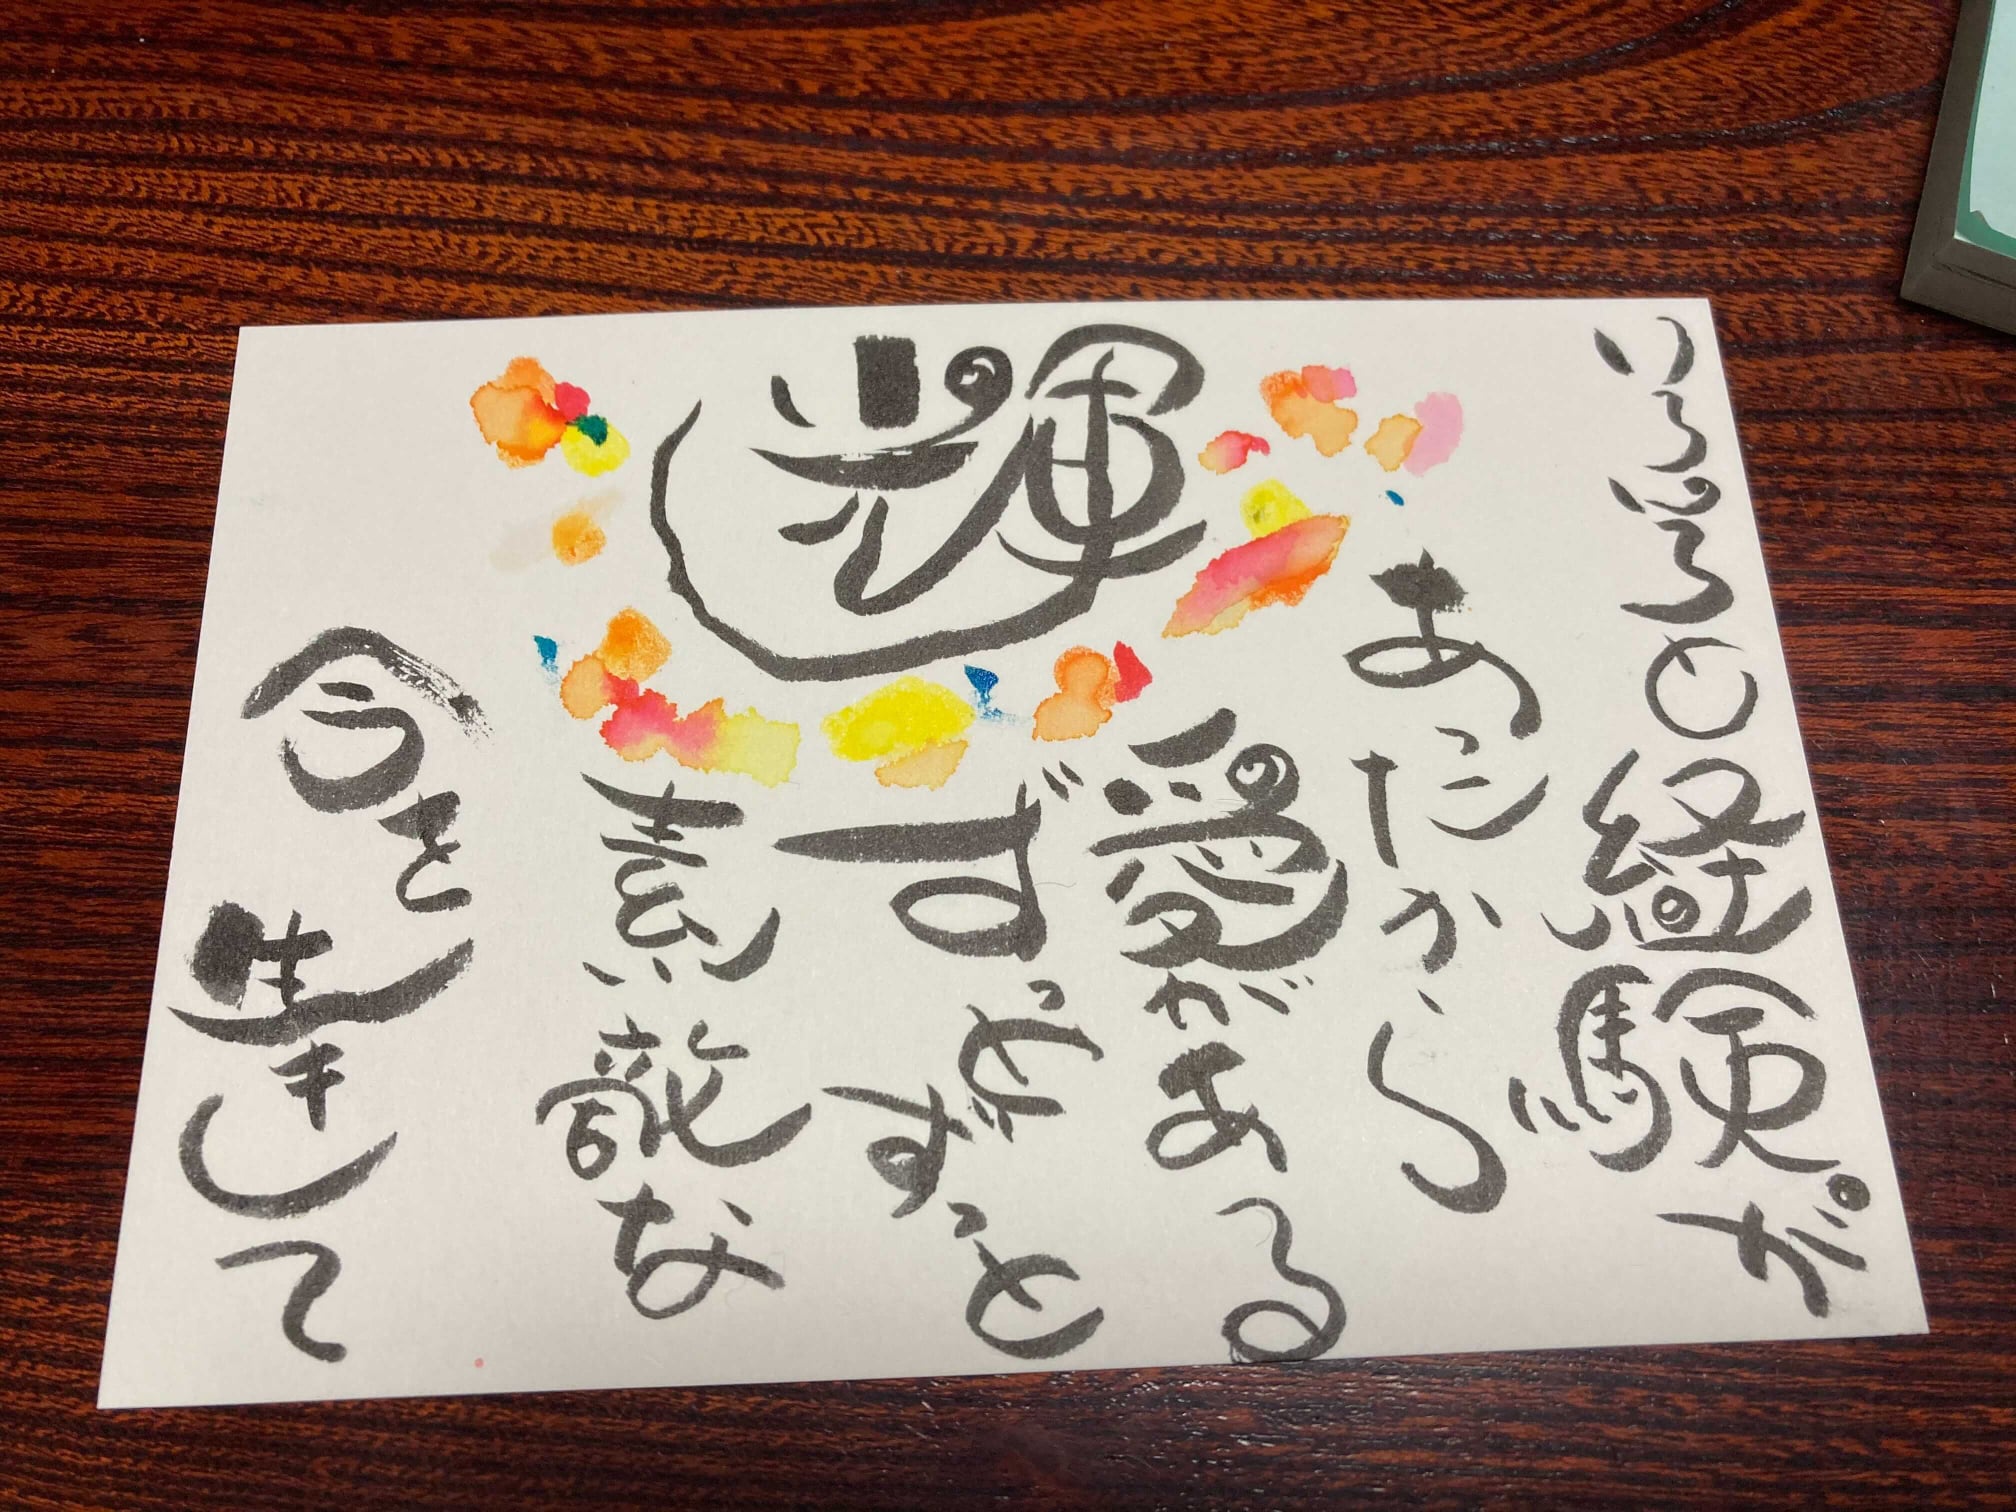 いろいろと経験が
あったから
輝
愛がある
ずっとずっと
素敵な
今を生きて